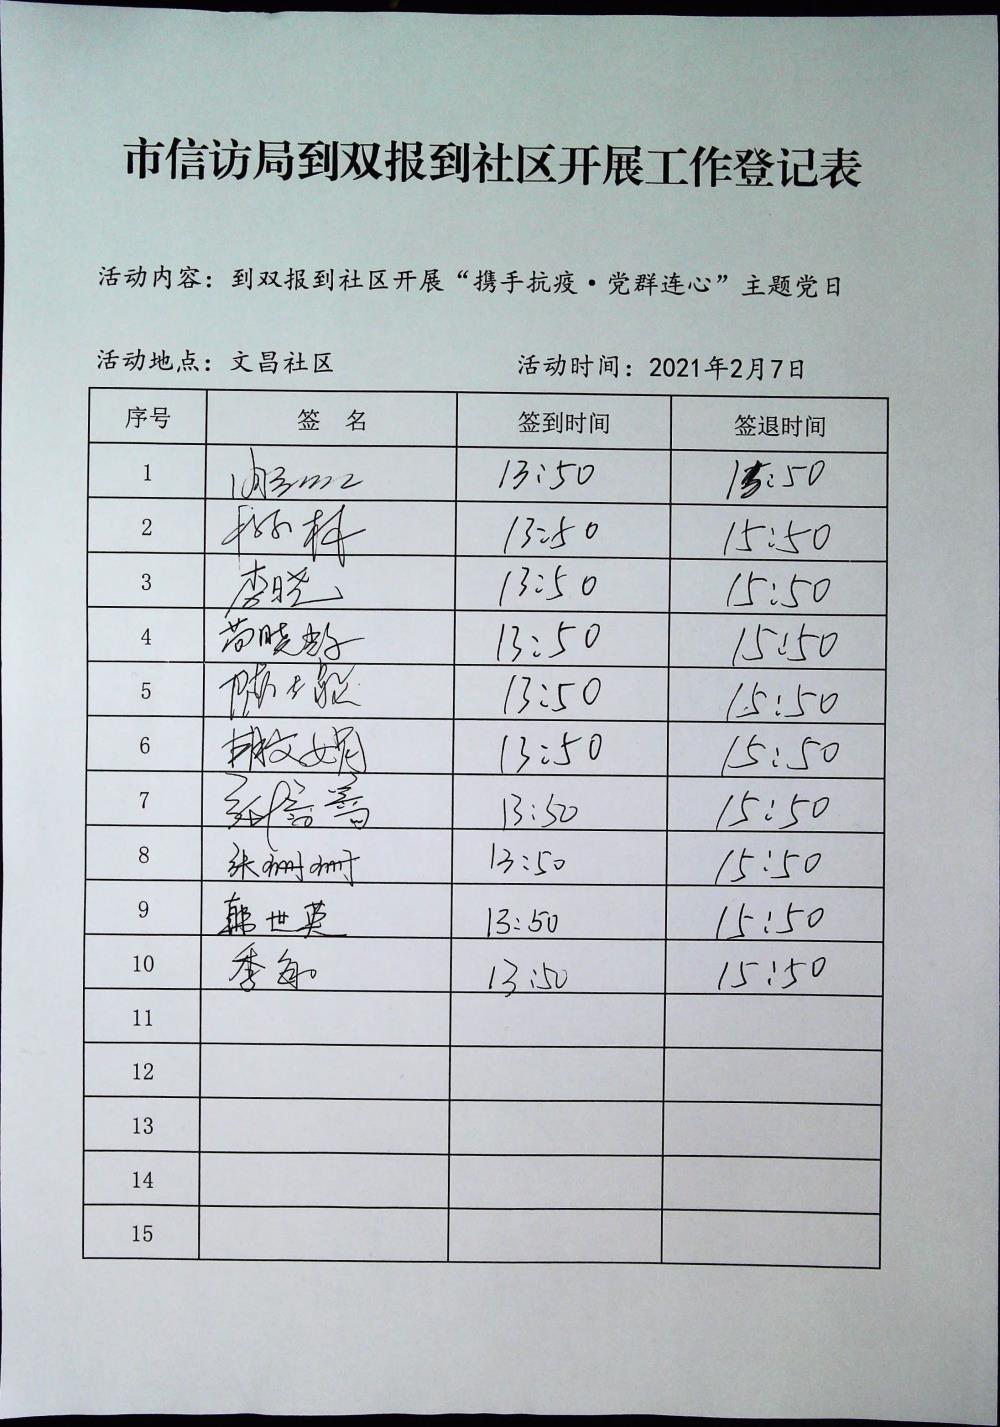 市信访局到双报到社区开展工作登记表
活动内容：到双报到社区开展“携手抗疫·党群连心”主题党日
活动地点：文昌社区 活动时间：2021年2月7日
序号 签 名 签到时间 签退时间
1 13:50 15:50
2 孙林 13:50 15:50
3 李晓 13:50 15:50
4 13:50 15:50
5 13:50 15:50
6 胡文娟 13:50 15:50
7 13:50 15:50
8 张珊珊 13:50 15:50
9 韩世英 13:50 15:50
10 季敏 13:50 15:50
11
12
13
14
15